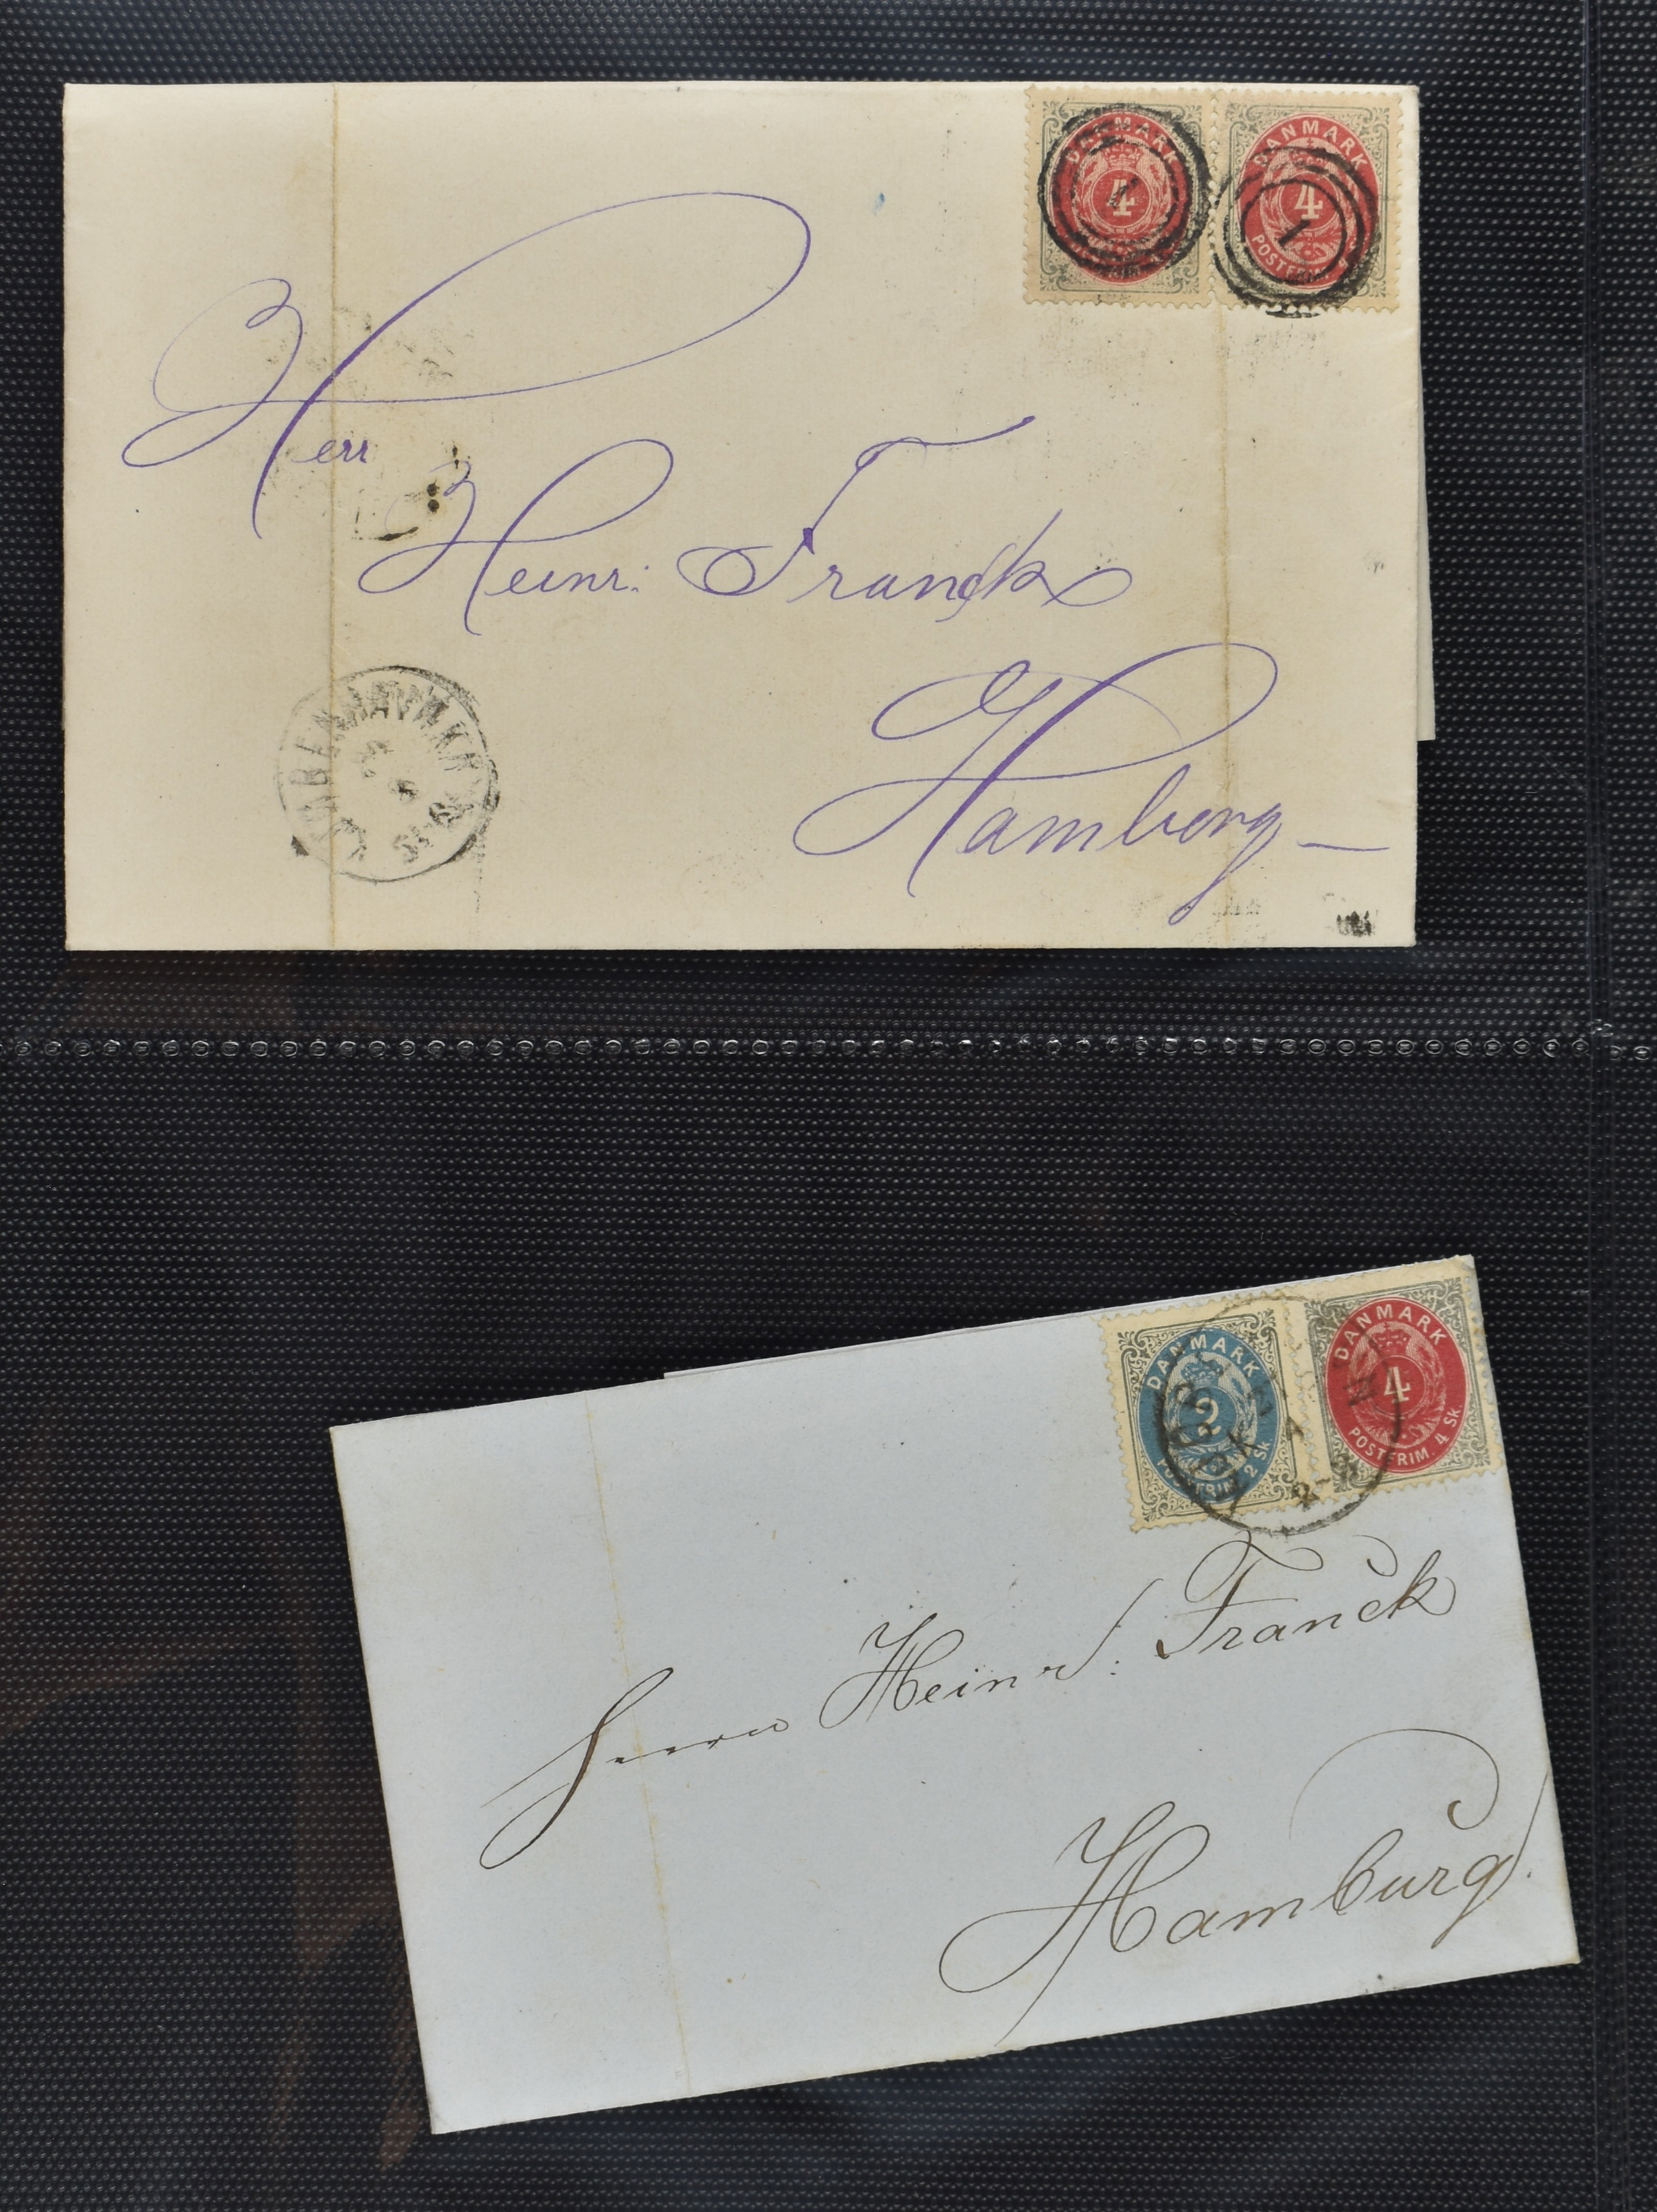 DANMARK
4
DANMARK
4
1
Herr
Heinr: Franck
Hamborg
DANMARK
2
POSTFRIM. 2 Sk
DANMARK
4
POSTFRIM. 4 Sk
Herrn Heinr: Franck
Hamburg.